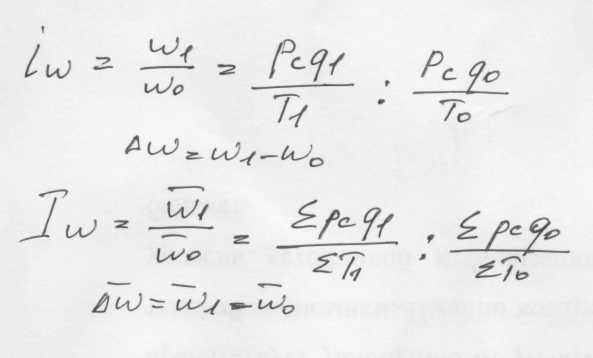 i_w = w_1/w_0 = p_c q_1/T_1 : p_c q_0/T_0
Δw = w_1 - w_0
I_w = w̄_1/w̄_0 = Σ p_c q_1/Σ T_1 : Σ p_c q_0/Σ T_0
Δw̄ = w̄_1 - w̄_0